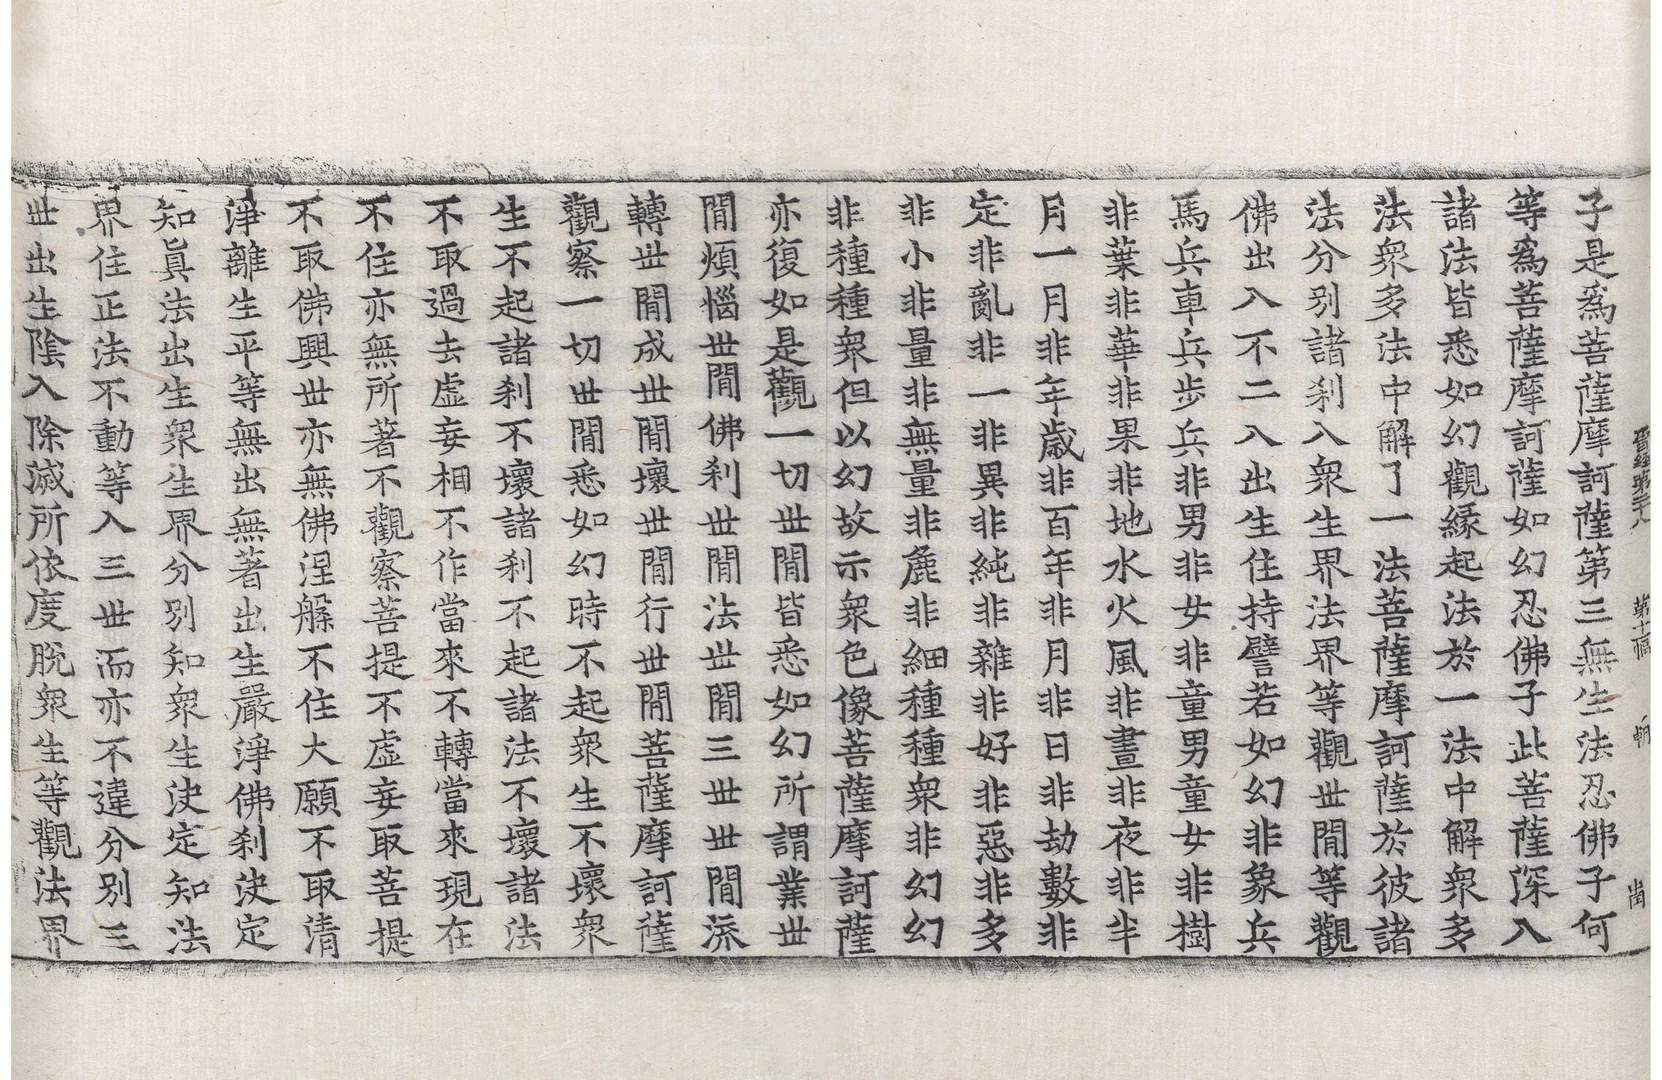 晉經第二十八 第十幅
子是爲菩薩摩訶薩第三無生法忍佛子何
等爲菩薩摩訶薩如幻忍佛子此菩薩深入
諸法皆悉如幻觀緣起法於一法中解衆多
法衆多法中解了一法菩薩摩訶薩於彼諸
法分別諸刹入衆生界法界等觀世間等觀
佛出入不二入出生住持譬若如幻非象兵
馬兵車兵步兵非男非女非童男童女非樹
非葉非華非果非地水火風非晝非夜非半
月一月非年歲非百年非月非日非劫數非
定非亂非一非異非純非雜非好非惡非多
非小非量非無量非麁非細種種衆非幻幻
非種種衆但以幻故示衆色像菩薩摩訶薩
亦復如是觀一切世間皆悉如幻所謂業世
間煩惱世間佛刹世間法世間三世世間流
轉世間成世間壞世間行世間菩薩摩訶薩
觀察一切世間悉如幻時不起衆生不壞衆
生不起諸刹不壞諸刹不起諸法不壞諸法
不取過去虛妄相不作當來不轉當來現在
不住亦無所著不觀察菩提不虛妄取菩提
不取佛興世亦無佛涅槃不住大願不取清
淨離生平等無出無著出生嚴淨佛刹決定
知眞法出生衆生界分別知衆生決定知法
界住正法不動等入三世而亦不違分別三
世出生陰入除滅所依度脫衆生等觀法界